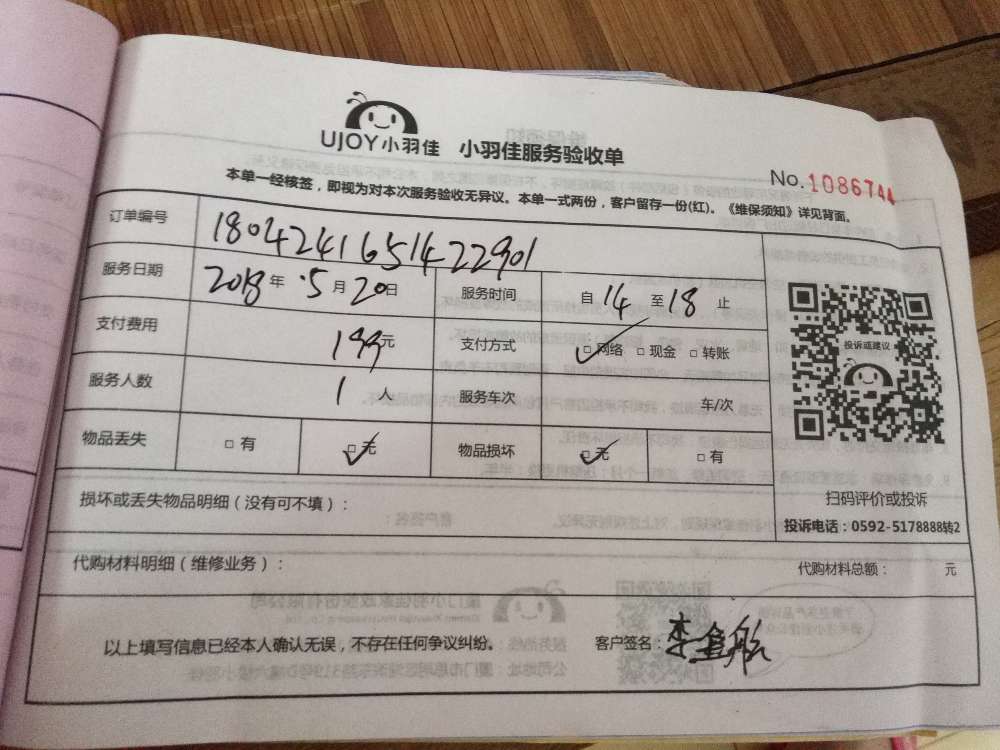 UJOY小羽佳 小羽佳服务验收单
No.1086744
本单一经核签，即视为对本次服务验收无异议。本单一式两份，客户留存一份(红)。《维保须知》详见背面。
订单编号 180424165142 2901
服务日期 2018年 5月20日 服务时间 自14至18止
支付费用 199元 支付方式 □网络 □现金 □转账
服务人数 1人 服务车次 车/次
物品丢失 □有 □无 物品损坏 □无 □有
投诉或建议
扫码评价或投诉
投诉电话：0592-5178888转2
损坏或丢失物品明细（没有可不填）：
代购材料明细（维修业务）： 代购材料总额： 元
以上填写信息已经本人确认无误，不存在任何争议纠纷。 客户签名：李